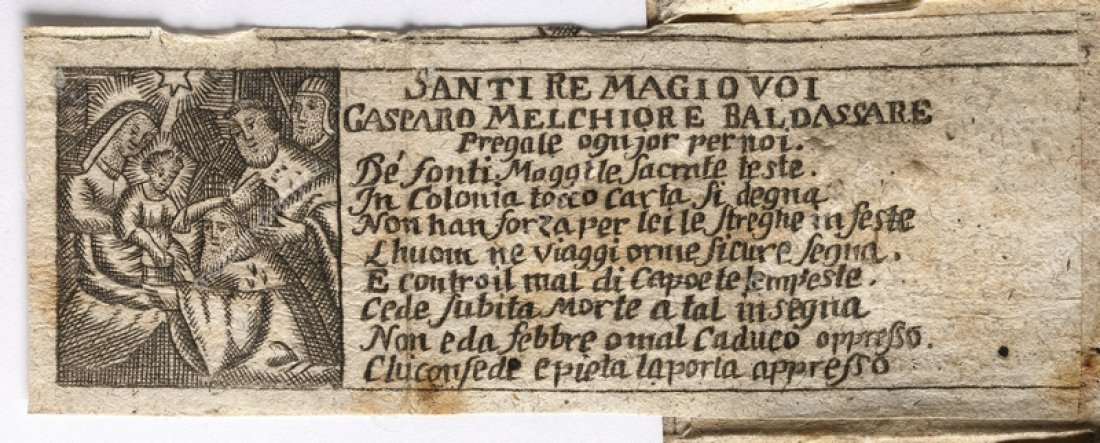 SANTI RE MAGI O VOI
GASPARO MELCHIORE BALDASSARE
Pregate ogni jor per noi.
De' santi Maggi le sacrate teste.
In Colonia tocco carta si degna
Non han forza per lei le streghe infeste
L'huom ne viaggi orme sicure segna.
E contro il mal di Capo e tempeste.
Cede subita Morte a tal insegna
Non e da febbre o mal Caduco oppresso.
Chi con fede e pieta la porta appresso